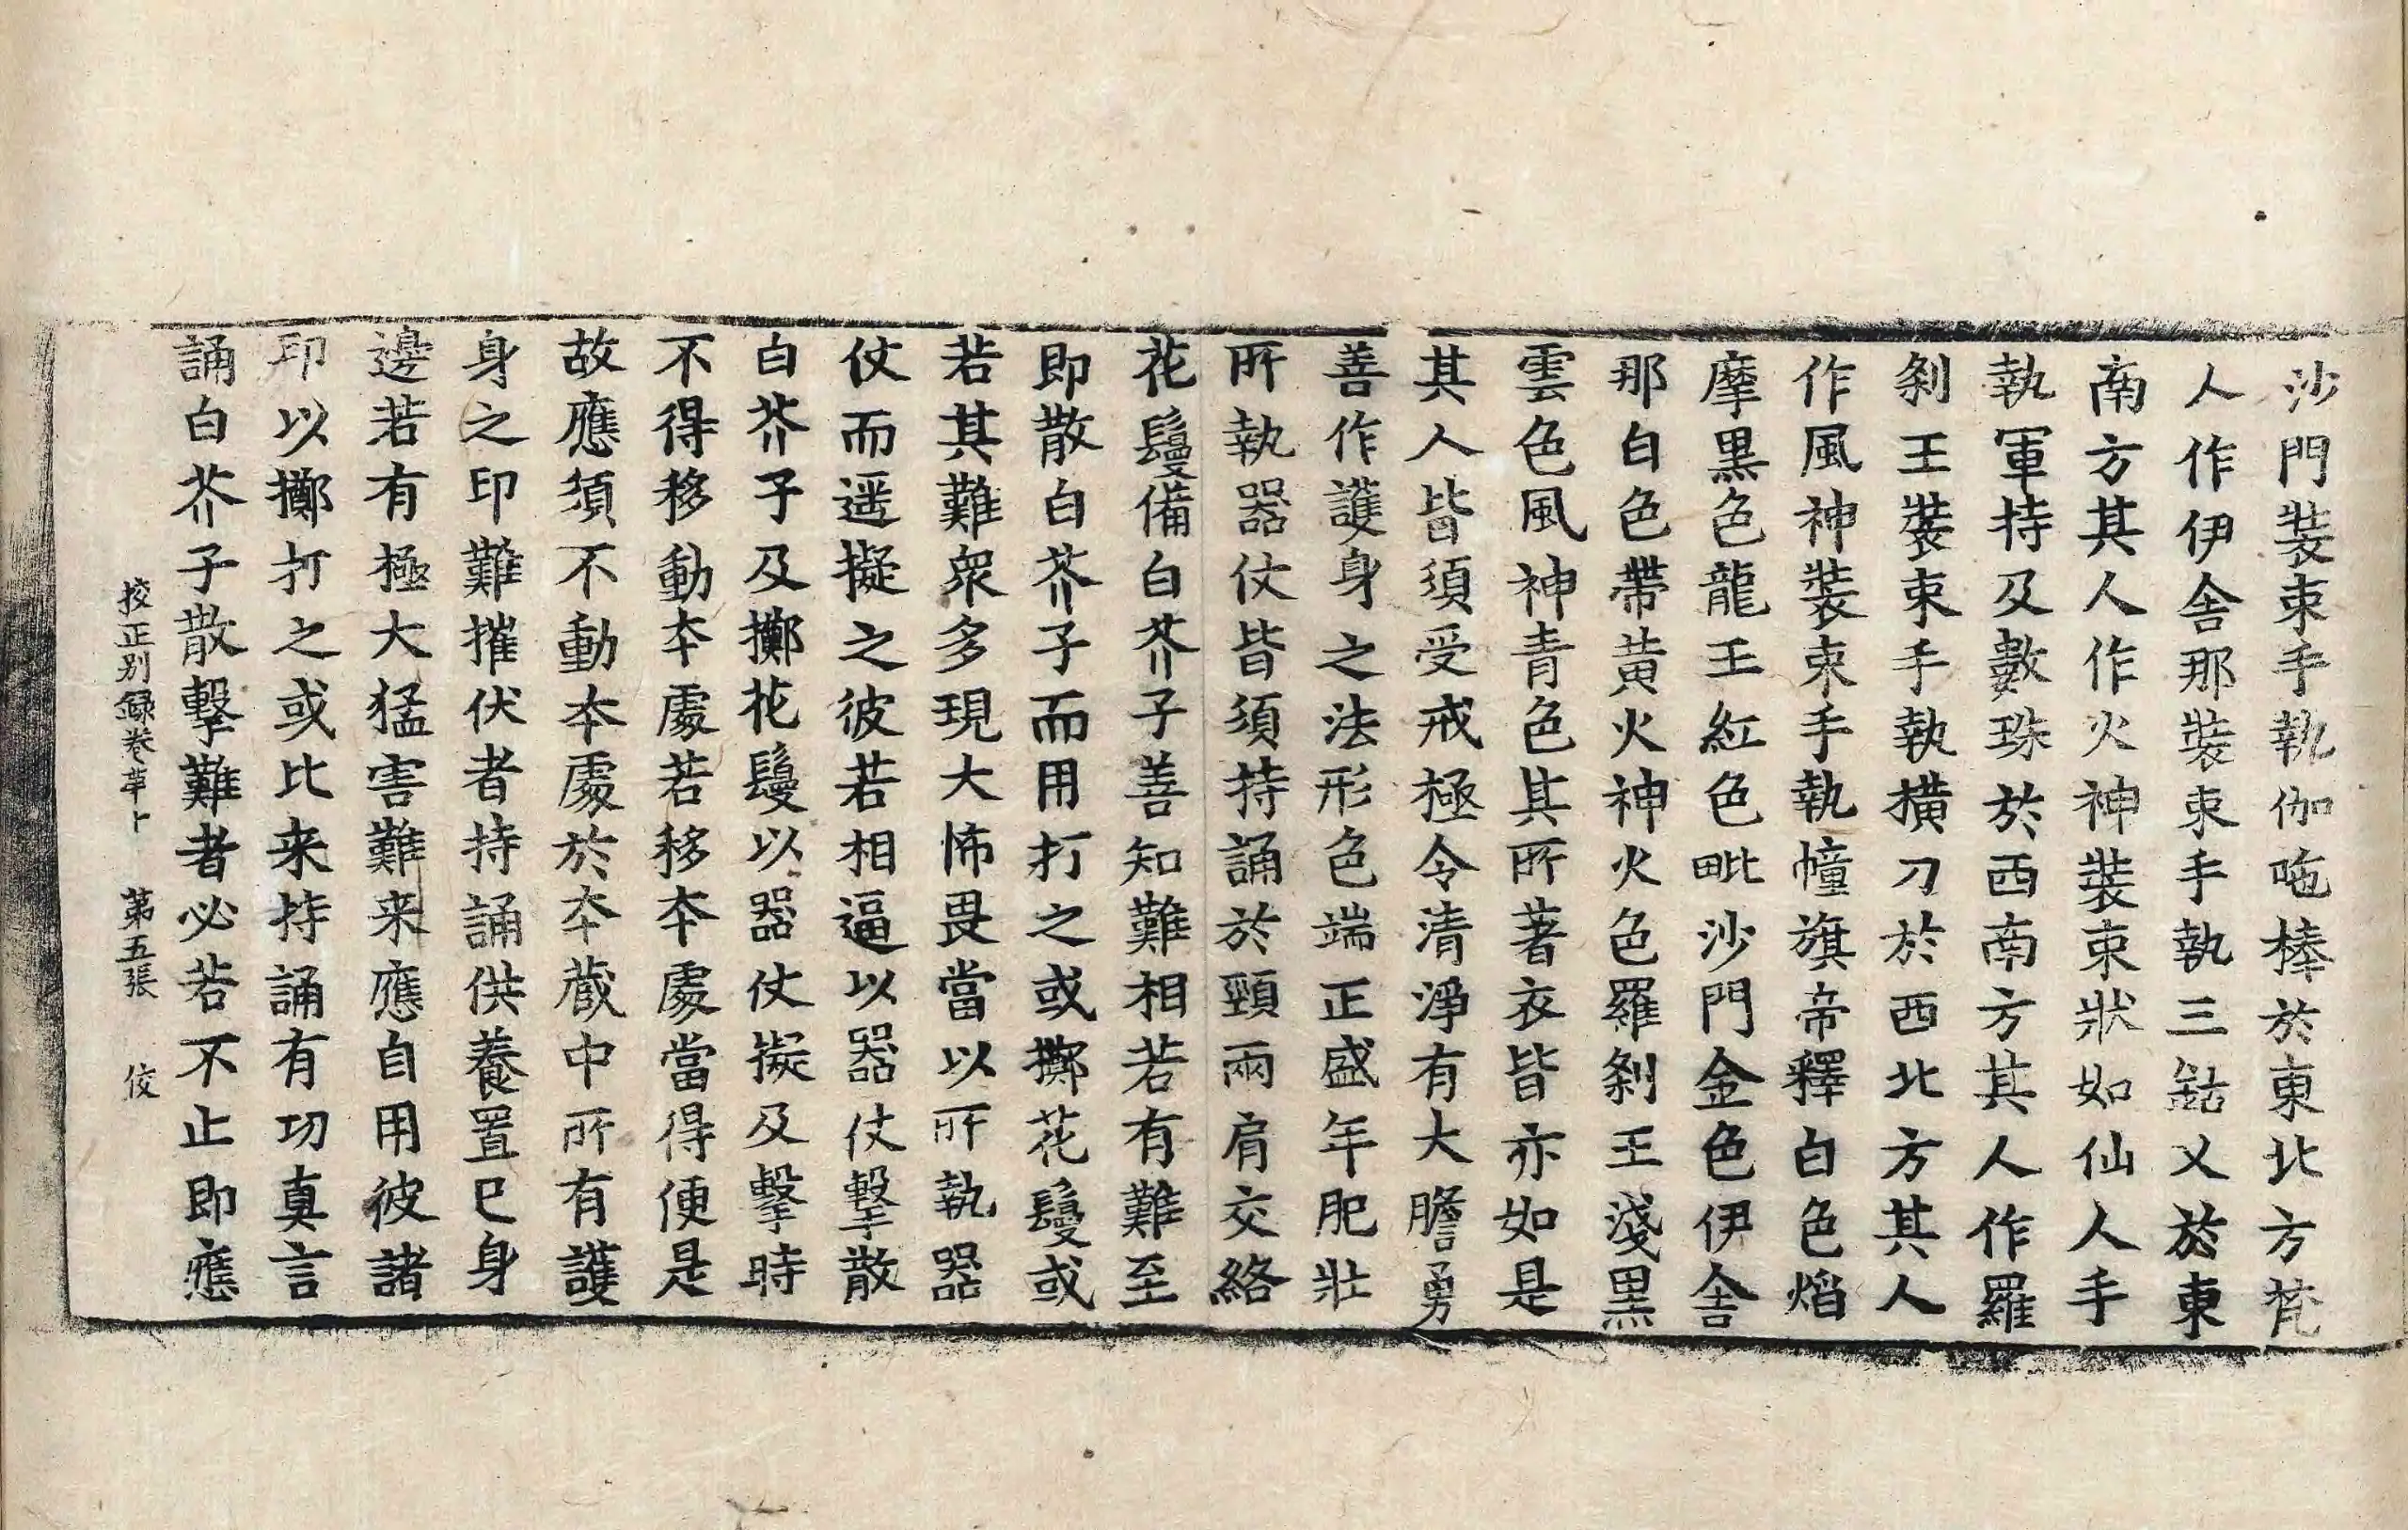 沙門裝束手執伽吔棒於東北方梵
人作伊舍那裝束手執三鈷叉於東
南方其人作火神裝束狀如仙人手
執軍持及數珠於西南方其人作羅
剎王裝束手執撗刀於西北方其人
作風神裝束手執幢旗帝釋白色焰
摩黒色龍王紅色毗沙門金色伊舍
那白色帶黃火神火色羅剎王淺黒
雲色風神青色其所著衣皆亦如是
其人皆須受戒極令清淨有大膽勇
善作護身之法形色端正盛年肥壯
所執器仗皆須持誦於頸兩肩交絡
花鬘備白芥子善知難相若有難至
即散白芥子而用打之或擲花鬘或
若其難衆多現大怖畏當以所執器
仗而遥擬之彼若相逼以器仗擊散
白芥子及擲花鬘以器仗擬及擊時
不得移動夲處若移夲處當得便是
故應須不動夲處於夲藏中所有護
身之印難摧伏者持誦供養置已身
邊若有極大猛害難来應自用彼諸
印以擲打之或比来持誦有功真言
誦白芥子散擊難者必若不止即應
挍正別録卷苐卜 苐五張 佼